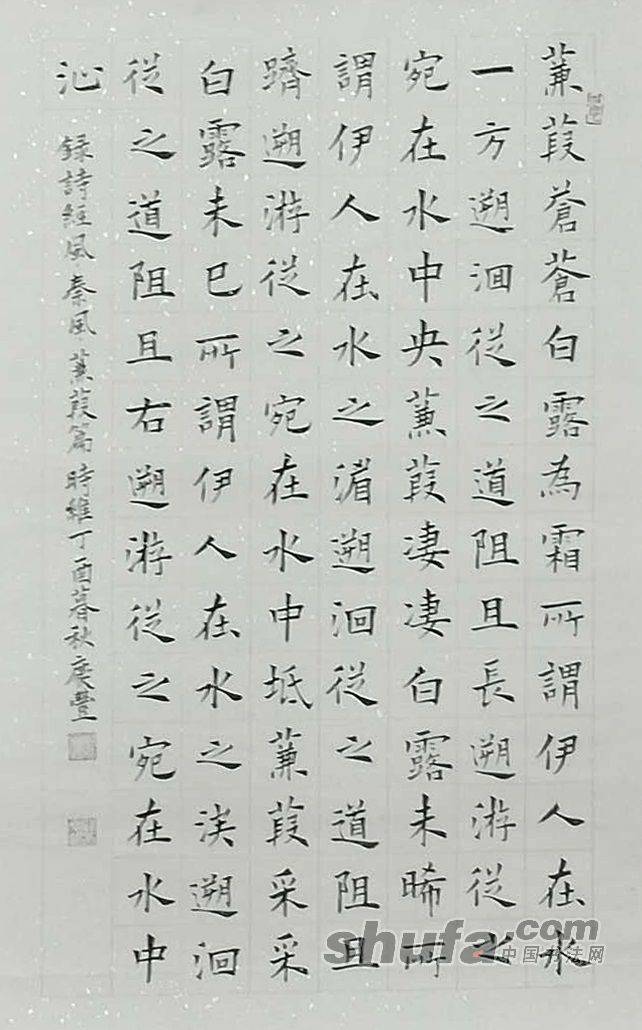 蒹葭蒼蒼白露為霜所謂伊人在水
一方遡洄從之道阻且長遡游從之
宛在水中央蒹葭凄凄白露未晞所
謂伊人在水之湄遡洄從之道阻且
躋遡游從之宛在水中坻蒹葭采采
白露未已所謂伊人在水之涘遡洄
從之道阻且右遡游從之宛在水中
沚
録詩經風秦風蒹葭篇時維丁酉暮秋慶豐
shufa.com
中国书法网